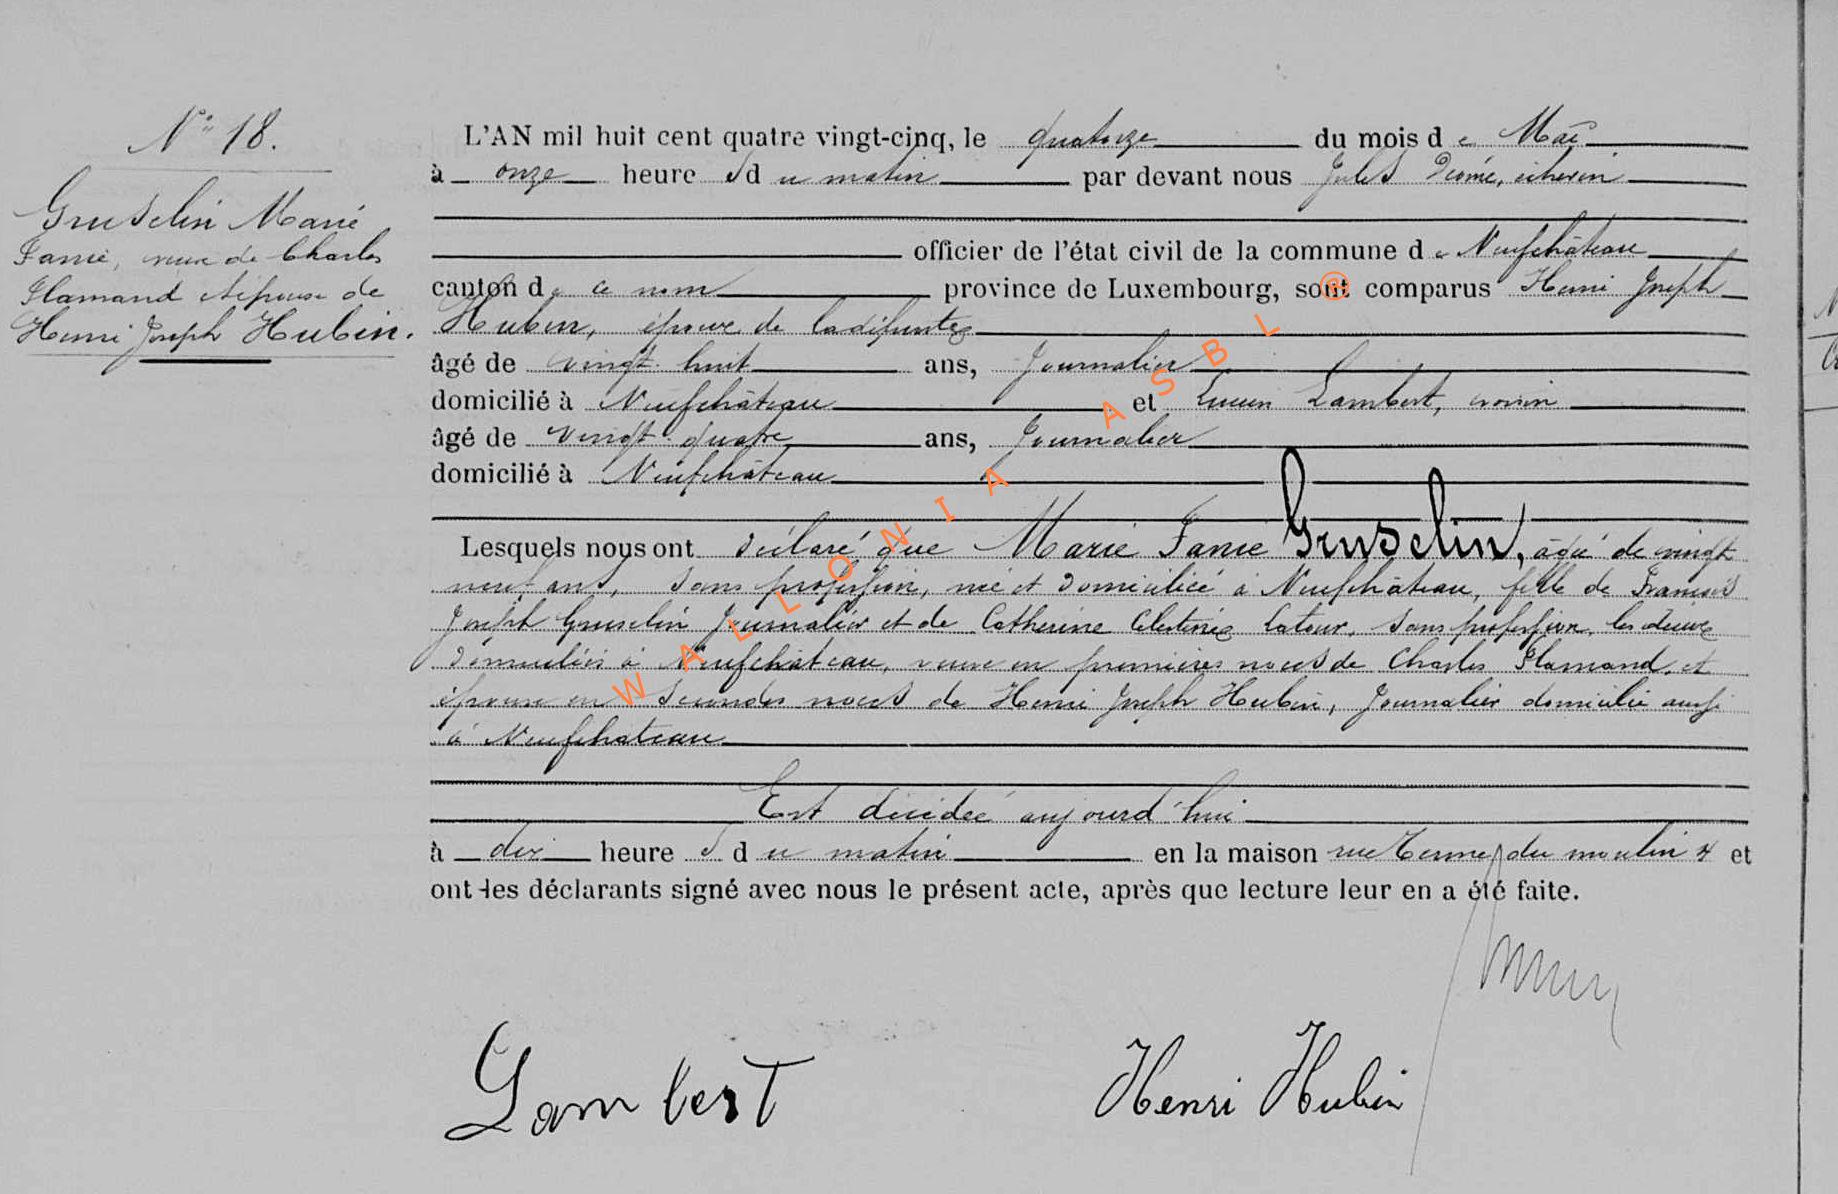 N° 18.
Gruselin Marie
Fanie, veuve de Charles
Flamand et épouse de
Henri Joseph Hubin.
L'AN mil huit cent quatre vingt-cinq, le quatorze du mois de Mai
à onze heures du matin par devant nous Jules échevin
officier de l'état civil de la commune de Neufchâteau
canton de ce nom province de Luxembourg, sont comparus Henri Joseph
Hubin, époux de la défunte
âgé de vingt huit ans, Journalier
domicilié à Neufchâteau et Lucien Lambert, voisin
âgé de vingt quatre ans, Journalier
domicilié à Neufchâteau
Lesquels nous ont déclaré que Marie Fanie Gruselin, âgée de vingt
neuf ans, sans profession, née et domiciliée à Neufchâteau, fille de François
Joseph Gruselin Journalier et de Catherine Célestine Latour, sans profession, les deux
domiciliés à Neufchâteau, veuve en premières noces de Charles Flamand, et
épouse en secondes noces de Henri Joseph Hubin, Journalier domicilié aussi
à Neufchâteau
Est décédée aujourd'hui
à dix heures du matin en la maison rue du moulin 4 et
ont les déclarants signé avec nous le présent acte, après que lecture leur en a été faite.
Lambert
Henri Hubin
WALLONIA ASBL ®